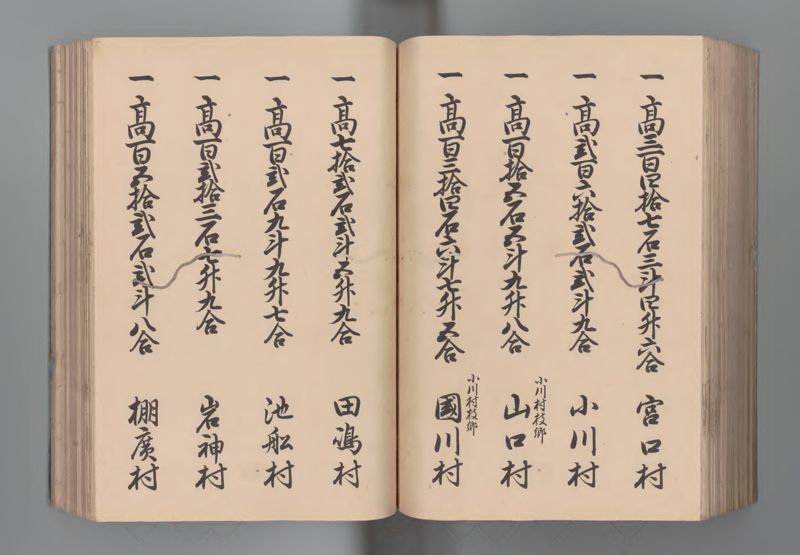 一 高三百四拾七石三斗四升六合 宮口村
一 高弐百六拾弐石弐斗九合 小川村
一 高百拾五石五斗九升八合 小川村枝郷 山口村
一 高百三拾四石六斗七升五合 小川村枝郷 國川村
一 高七拾弐石弐斗五升九合 田嶋村
一 高百弐石九斗九升七合 池舩村
一 高百弐拾三石七升九合 岩神村
一 高百五拾弐石弐斗八合 棚廣村